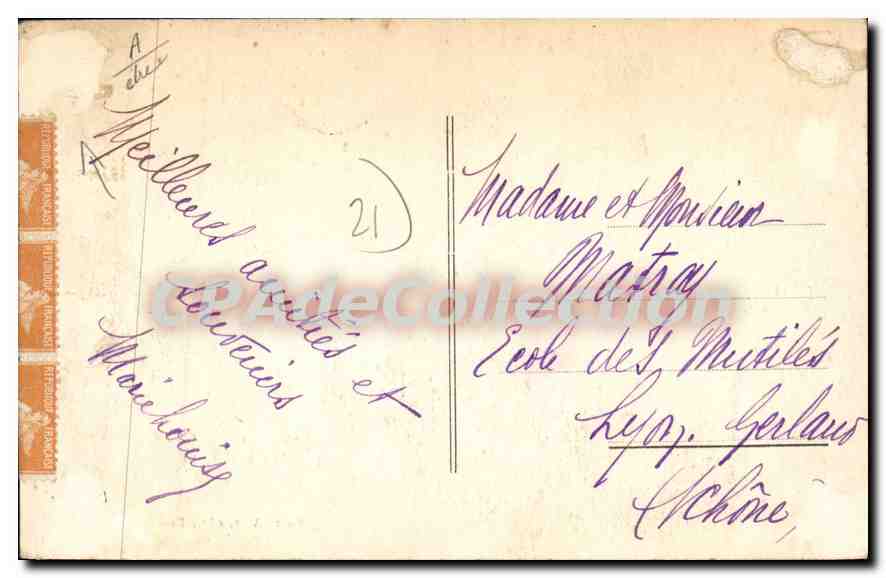 A
Meilleures amitiés et
souvenirs
Marie Louise
21
Madame et Monsieur
Matray
Ecole des Mutilés
Lyon. Gerland
Rhône,
REPUBLIQUE FRANÇAISE
REPUBLIQUE FRANÇAISE
REPUBLIQUE FRANÇAISE
CPAdeCollection.com